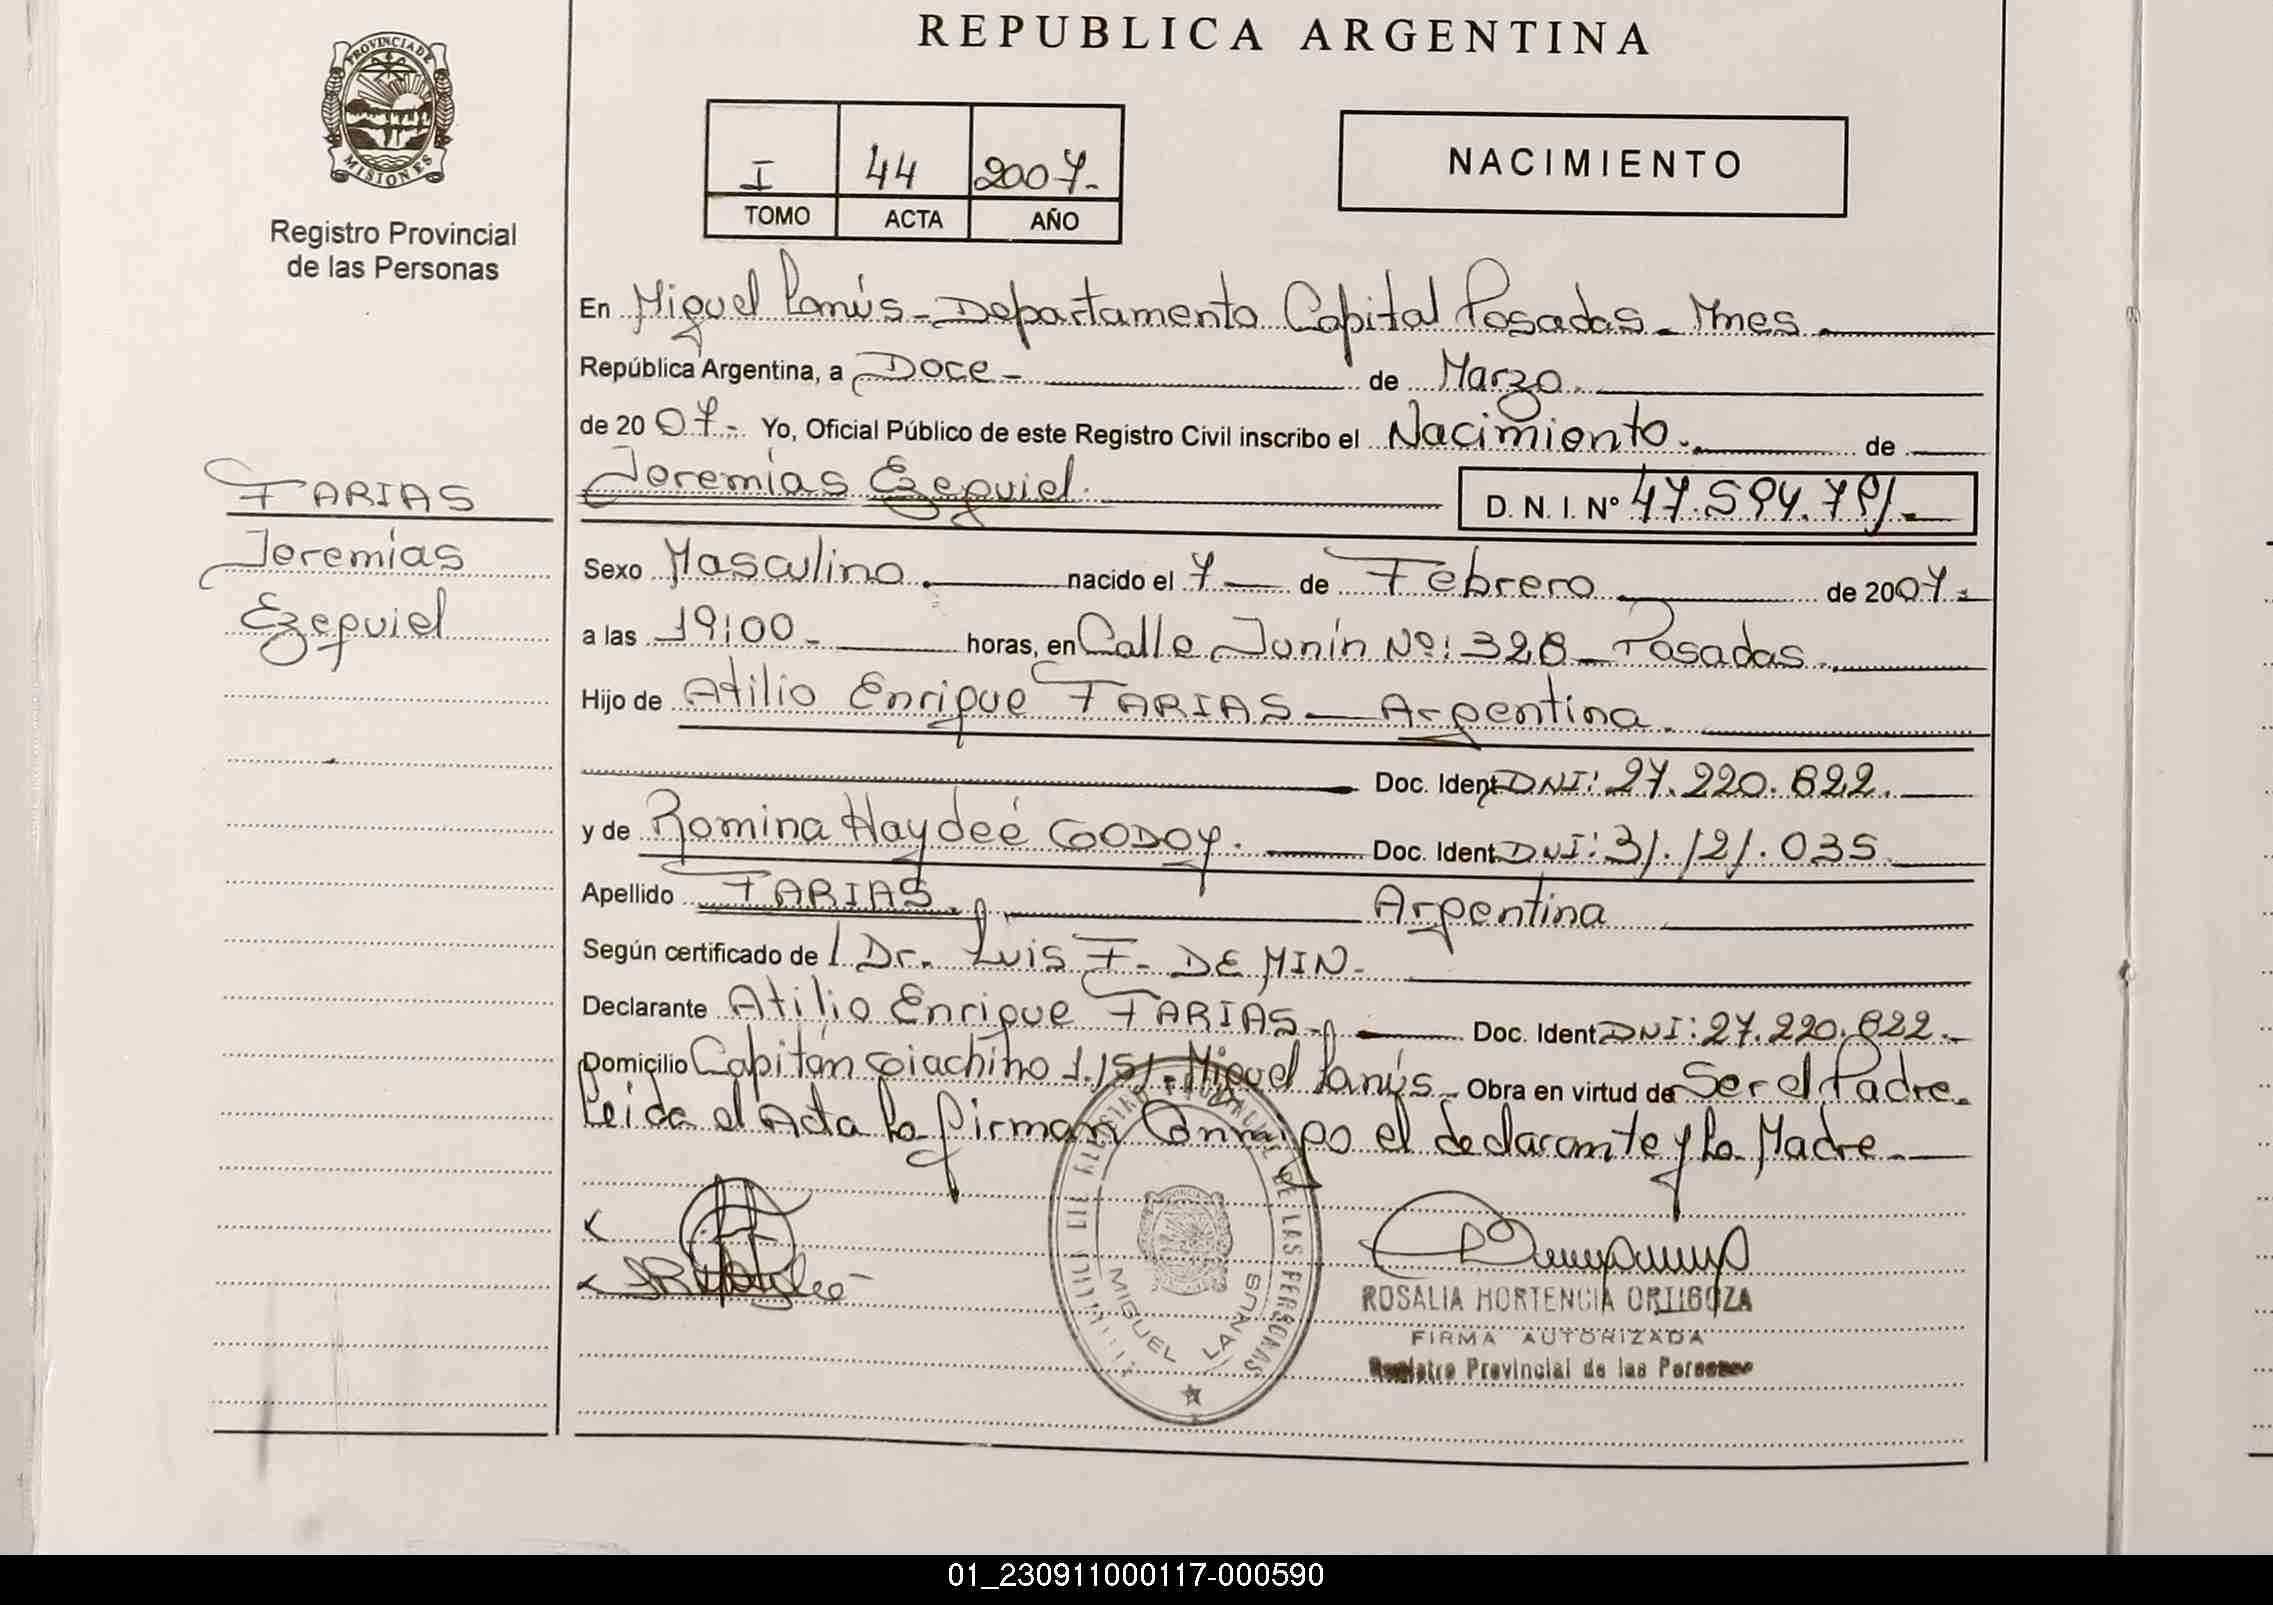 REPUBLICA ARGENTINA
PROVINCIA DE
MISIONES
Registro Provincial
de las Personas
I 44 2007-
TOMO ACTA AÑO
NACIMIENTO
En Miguel Lanús - Departamento Capital Posadas - Mnes.
República Argentina, a Doce - de Marzo.
de 2007- Yo, Oficial Público de este Registro Civil inscribo el Nacimiento. de
Jeremías Ezequiel.
D. N. I. Nº 47.594.791-
FARIAS
Jeremías
Ezequiel
Sexo Masculino. nacido el 7 de Febrero de 2007.
a las 19:00 horas, en Calle Junín Nº: 328 - Posadas.
Hijo de Atilio Enrique FARIAS - Argentina.
Doc. Ident. DNI: 27.220.822.
y de Romina Haydeé GODOY. Doc. Ident. DNI: 31.121.035.
Apellido FARIAS. Argentina
Según certificado de l Dr. Luis F. DE MIN.
Declarante Atilio Enrique FARIAS. Doc. Ident. DNI: 27.220.822.
Domicilio Capitán Giachino 1.151. Miguel Lanús. Obra en virtud de Ser el Padre.
Leida el Acta la firman Conmigo el declarante y la Madre.
REGISTRO PROVINCIAL DE LAS PERSONAS
MIGUEL LANUS
ROSALIA HORTENCIA ORTIGOZA
FIRMA AUTORIZADA
Registro Provincial de las Personas
01_230911000117-000590